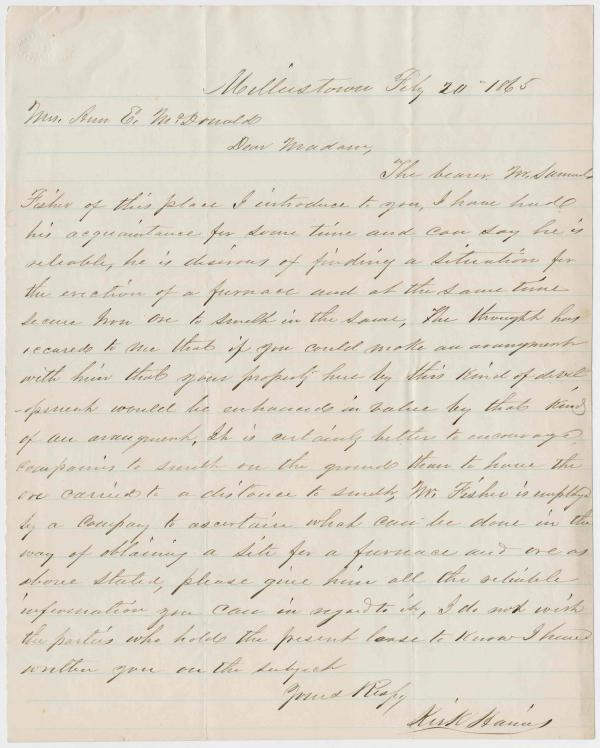 Millerstown Feby 20th 1865
Mrs. Ann E. McDonald
Dear Madam,
The bearer Mr. Samuel
Fisher of this place I introduce to you, I have had
his acquaintance for some time and can say he is
reliable, he is desirous of finding a situation for
the erection of a furnace and at the same time
secure Iron Ore to smelt in the same, The thought has
occured to me that if you could make an arangment
with him that your property here by this kind of devel
-opment would be enhanced in value by that kind
of an arangment, It is certainly better to encourage
companies to smelt on the ground than to have the
ore carried to a distance to smelt, Mr. Fisher is employed
by a Company to ascertain what can be done in the
way of obtaining a site for a furnace and ore as
above stated, please give him all the reliable
information you can in regard to it, I do not wish
the parties who hold the present lease to know I have
written you on the subject
Yours Respy
Kirk Haines